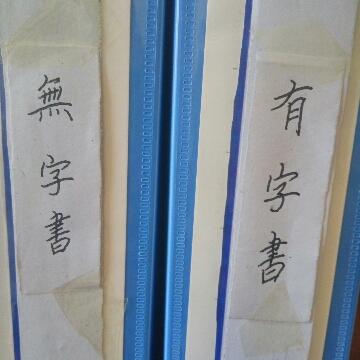 無字書
有字書